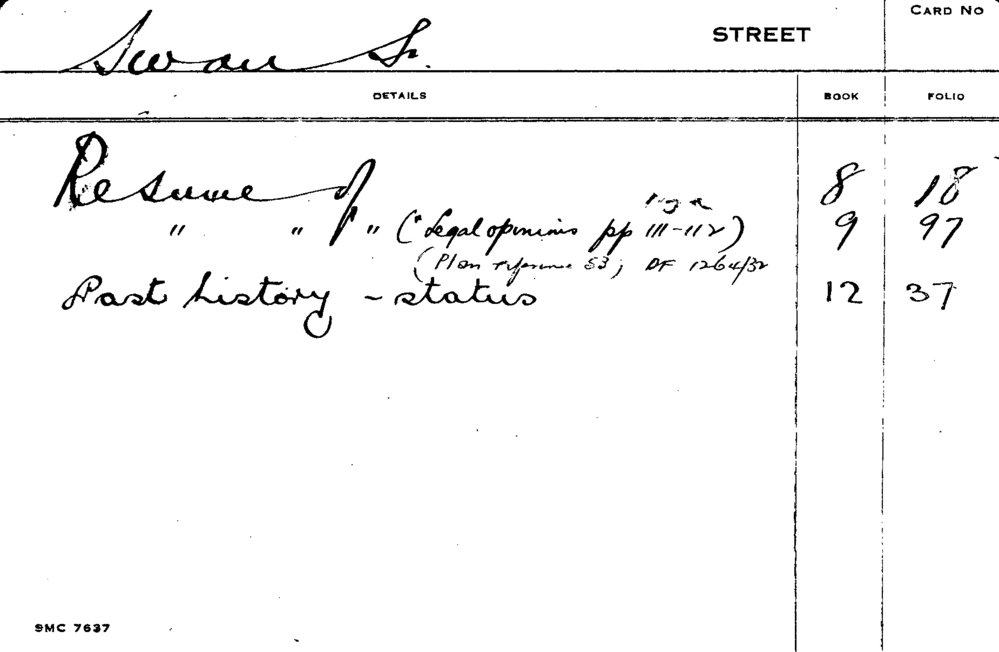 CARD NO
Swan St. STREET
DETAILS BOOK FOLIO
Resume of 8 18
" " " (" Legal opinions pp 111-112) 9 97
(Plan reference 53; DF 1264/32
Past history - status 12 37
SMC 7637